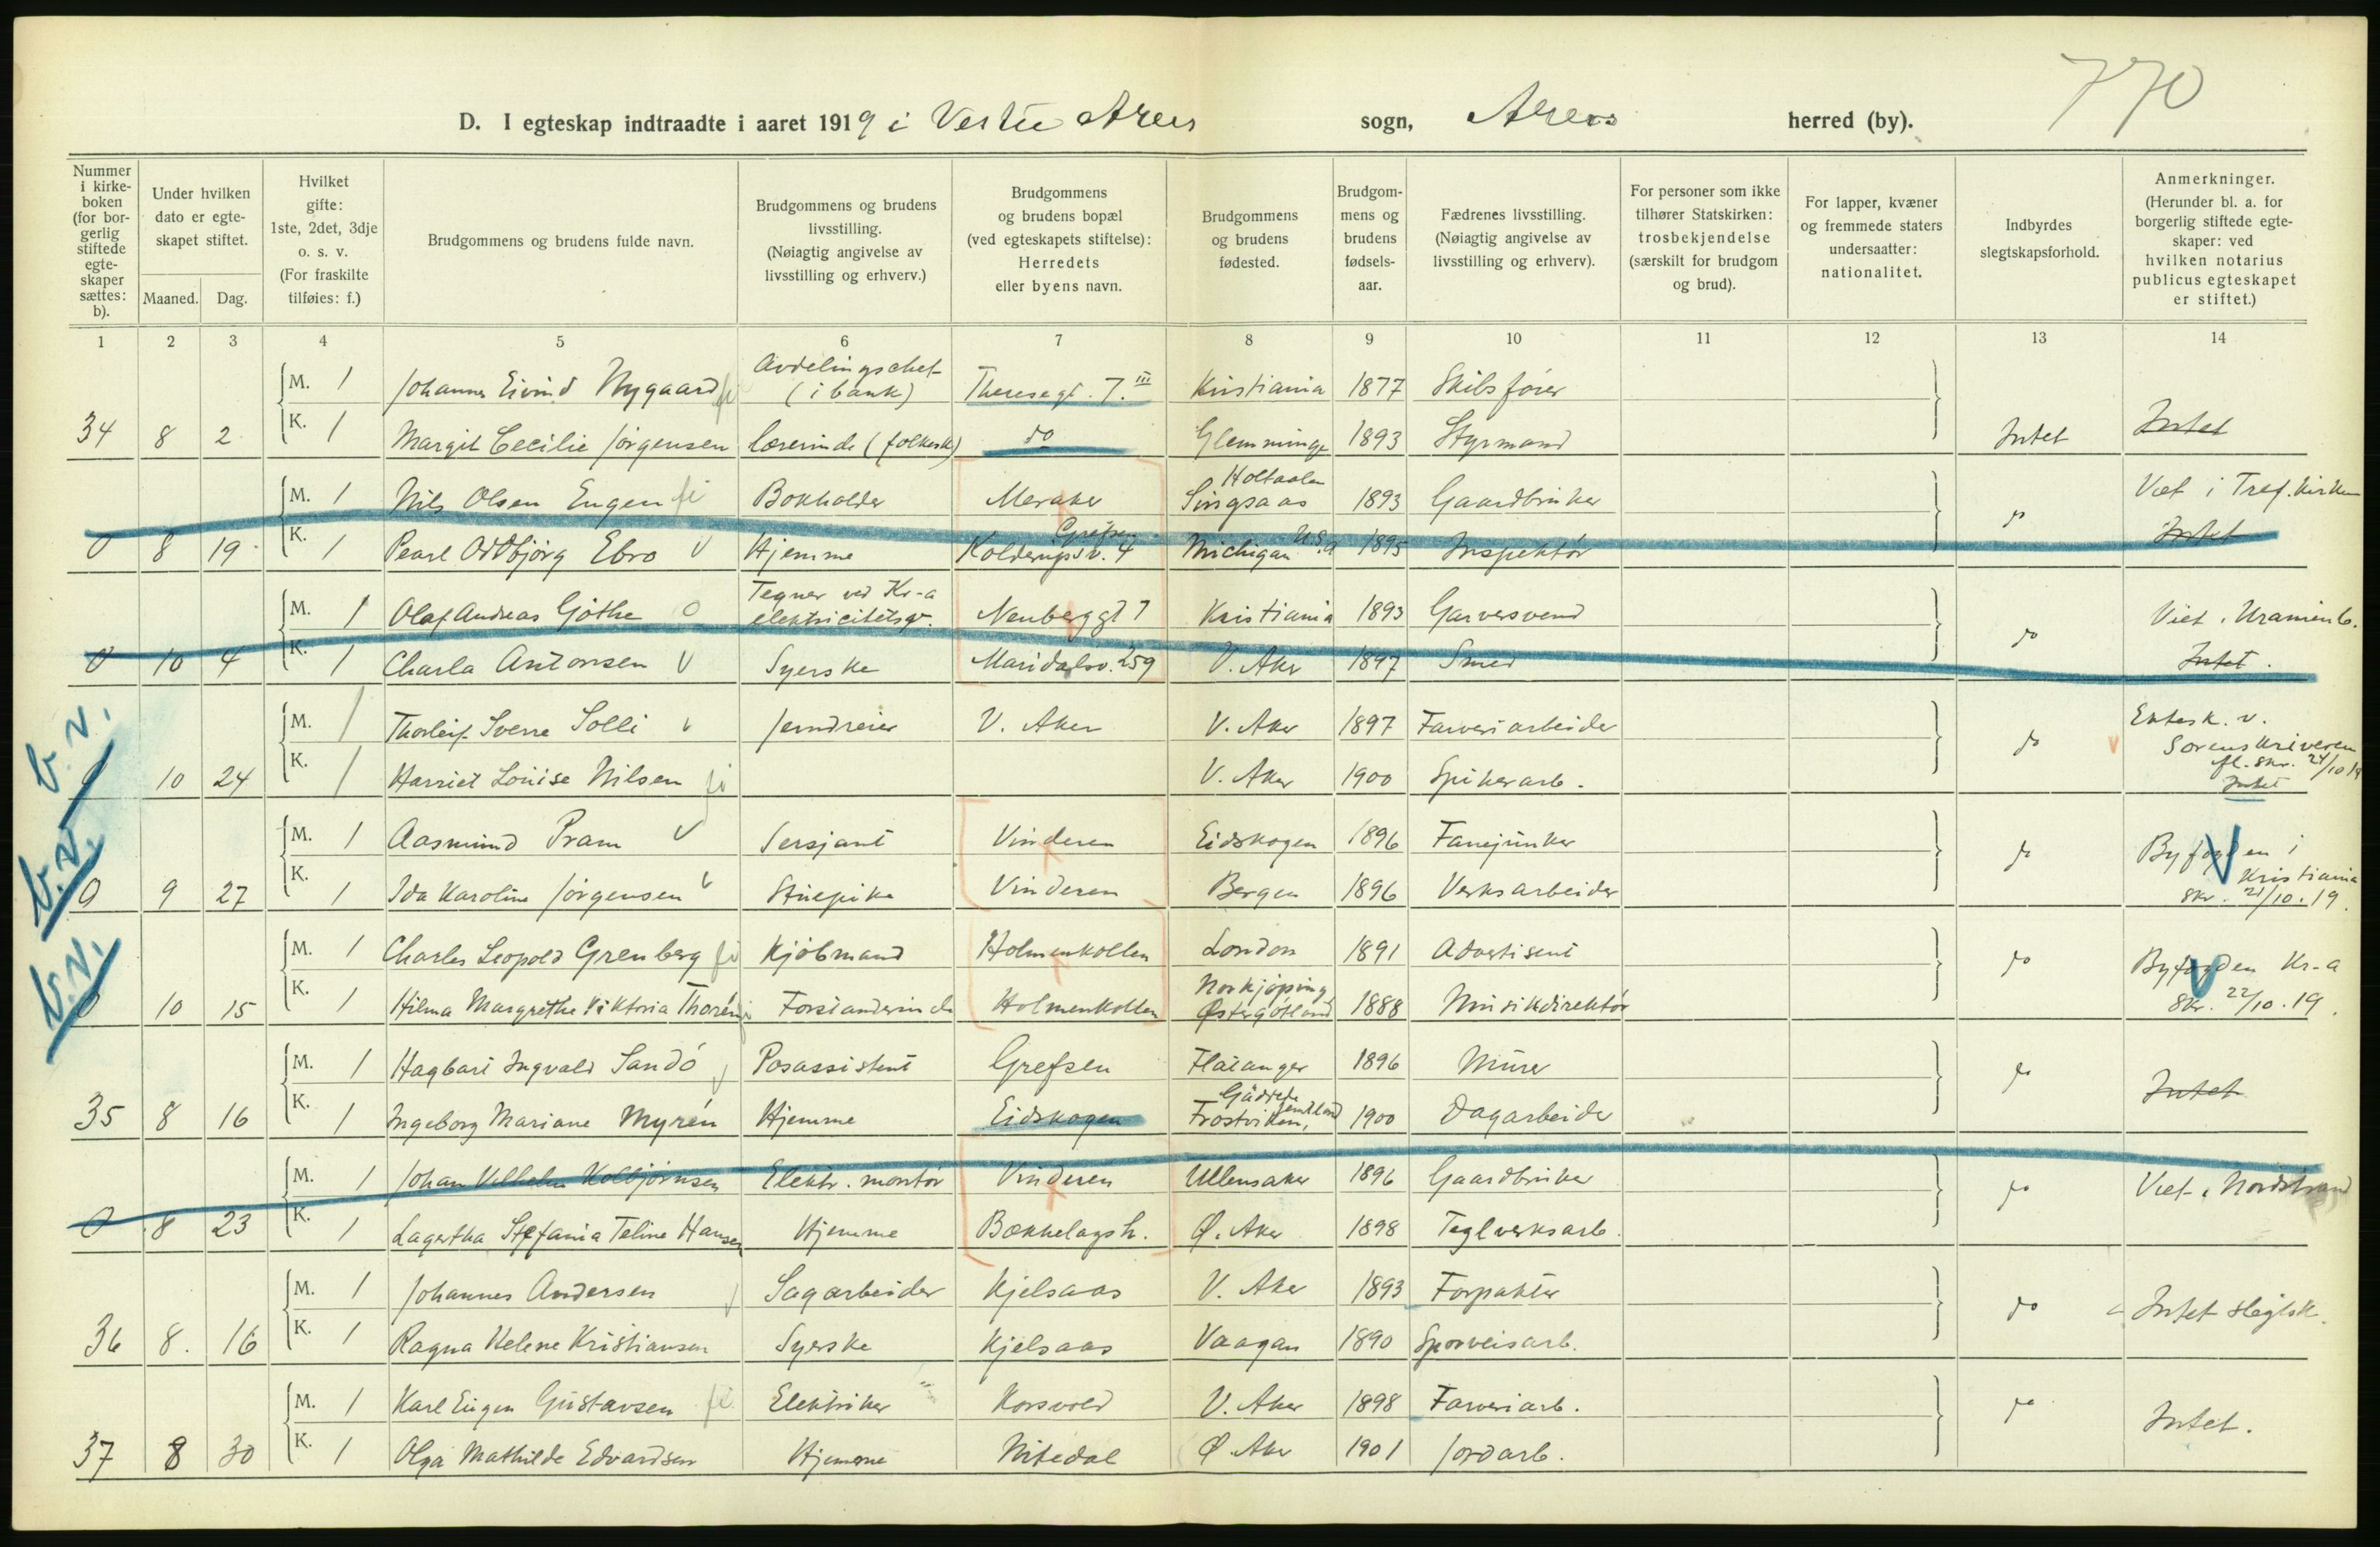 770
D. I egteskap indtraadte i aaret 1919 i Vestre Akers sogn, Akers herred (by).
Nummer i kirke-boken (for bor-gerlig stiftede egte-skaper sættes: b).
Under hvilken dato er egte-skapet stiftet.
Maaned. Dag.
Hvilket gifte: 1ste, 2det, 3dje o. s. v. (For fraskilte tilføies: f.)
Brudgommens og brudens fulde navn.
Brudgommens og brudens livsstilling. (Nøiagtig angivelse av livsstilling og erhverv.)
Brudgommens og brudens bopæl (ved egteskapets stiftelse): Herredets eller byens navn.
Brudgommens og brudens fødested.
Brudgom-mens og brudens fødsels-aar.
Fædrenes livsstilling. (Nøiagtig angivelse av livsstilling og erhverv).
For personer som ikke tilhører Statskirken: trosbekjendelse (særskilt for brudgom og brud).
For lapper, kvæner og fremmede staters undersaatter: nationalitet.
Indbyrdes slegtskapsforhold.
Anmerkninger. (Herunder bl. a. for borgerlig stiftede egte-skaper: ved hvilken notarius publicus egteskapet er stiftet.)
1 2 3 4 5 6 7 8 9 10 11 12 13 14
M. 1 Johannes Eivind Nygaard Avdelingschef (i bank) Theresegt. 7. III Kristiania 1877 Skibsfører
34 8 2 K. 1 Margit Cecilie Jørgensen lærerinde (folkesk) do Glemminge 1893 Styrmand Intet Intet
M. 1 Nils Olsen Eugen Bokholder Meraker Holtaalen Singsaas 1893 Gaardbruker Viet i Tref. kirken
0 8 19 K. 1 Pearl Oddbjörg Ebro Hjemme Grefsen Kolderupsv. 4 Michigan U.S.A 1895 Inspektør do Intet
M. 1 Olaf Andreas Göthe Tegner ved Kr-a elektricitetsv. Neuberggt 7 Kristiania 1893 Garversvend Viet i Uranienb.
0 10 4 K. 1 Charla Antonsen Syerske Maridalsv. 259 V. Aker 1897 Smed do Intet.
b.v.
M. 1 Thorleif Sverre Solli Jerndreier V. Aker V. Aker 1897 Farveriarbeider Ektesk. v. Sorenskriveren
10 24 K. 1 Harriet Louise Nilsen V. Aker 1900 Spikerarb. do fl. skr. 24/10 19 Intet
b.v.
M. 1 Aasmund Pram Sersjant Vinderen Eidskogen 1896 Fanejunker Byfogden i
0 9 27 K. 1 Ida Karoline Jørgensen Stuepike Vinderen Bergen 1896 Verksarbeider do Kristiania skr. 21/10.19.
b.v.
M. 1 Charles Leopold Grenberg Kjøbmand Holmenkollen London 1891 Advertisent Byfogden Kr-a
0 10 15 K. 1 Hilma Margrethe Viktoria Thorén Forstanderinde Holmenkollen Norkjøping Østergötland 1888 Musikdirektør do skr. 22/10.19.
M. 1 Hagbart Ingvald Sandö Posassistent Grefsen Flatanger 1896 Murer
35 8 16 K. 1 Ingeborg Mariane Myrén Hjemme Eidskogen Gäddede Frostviken, Jemtland 1900 Dagarbeider do Intet
M. 1 Johan Vilhelm Kolbjørnsen Elektr. montør Vinderen Ullensaker 1896 Gaardbruker Viet i Nordstrand
0 8 23 K. 1 Lagertha Stefania Teline Hansen Hjemme Bækkelagsh. Ø. Aker 1898 Teglverksarb. do
M. 1 Johannes Andersen Sagarbeider Kjelsaas V. Aker 1893 Forpakter
36 8. 16 K. 1 Ragna Helene Kristiansen Syerske Kjelsaas Vaagan 1890 Sporveisarb. do Intet slegtsk.
M. 1 Karl Eugen Gustavsen Elektriker Korsvold V. Aker 1898 Farveriarb.
37 8 30 K. 1 Olga Mathilde Edvardsen Hjemme Nitedal Ø. Aker 1901 Jordarb. do Intet.